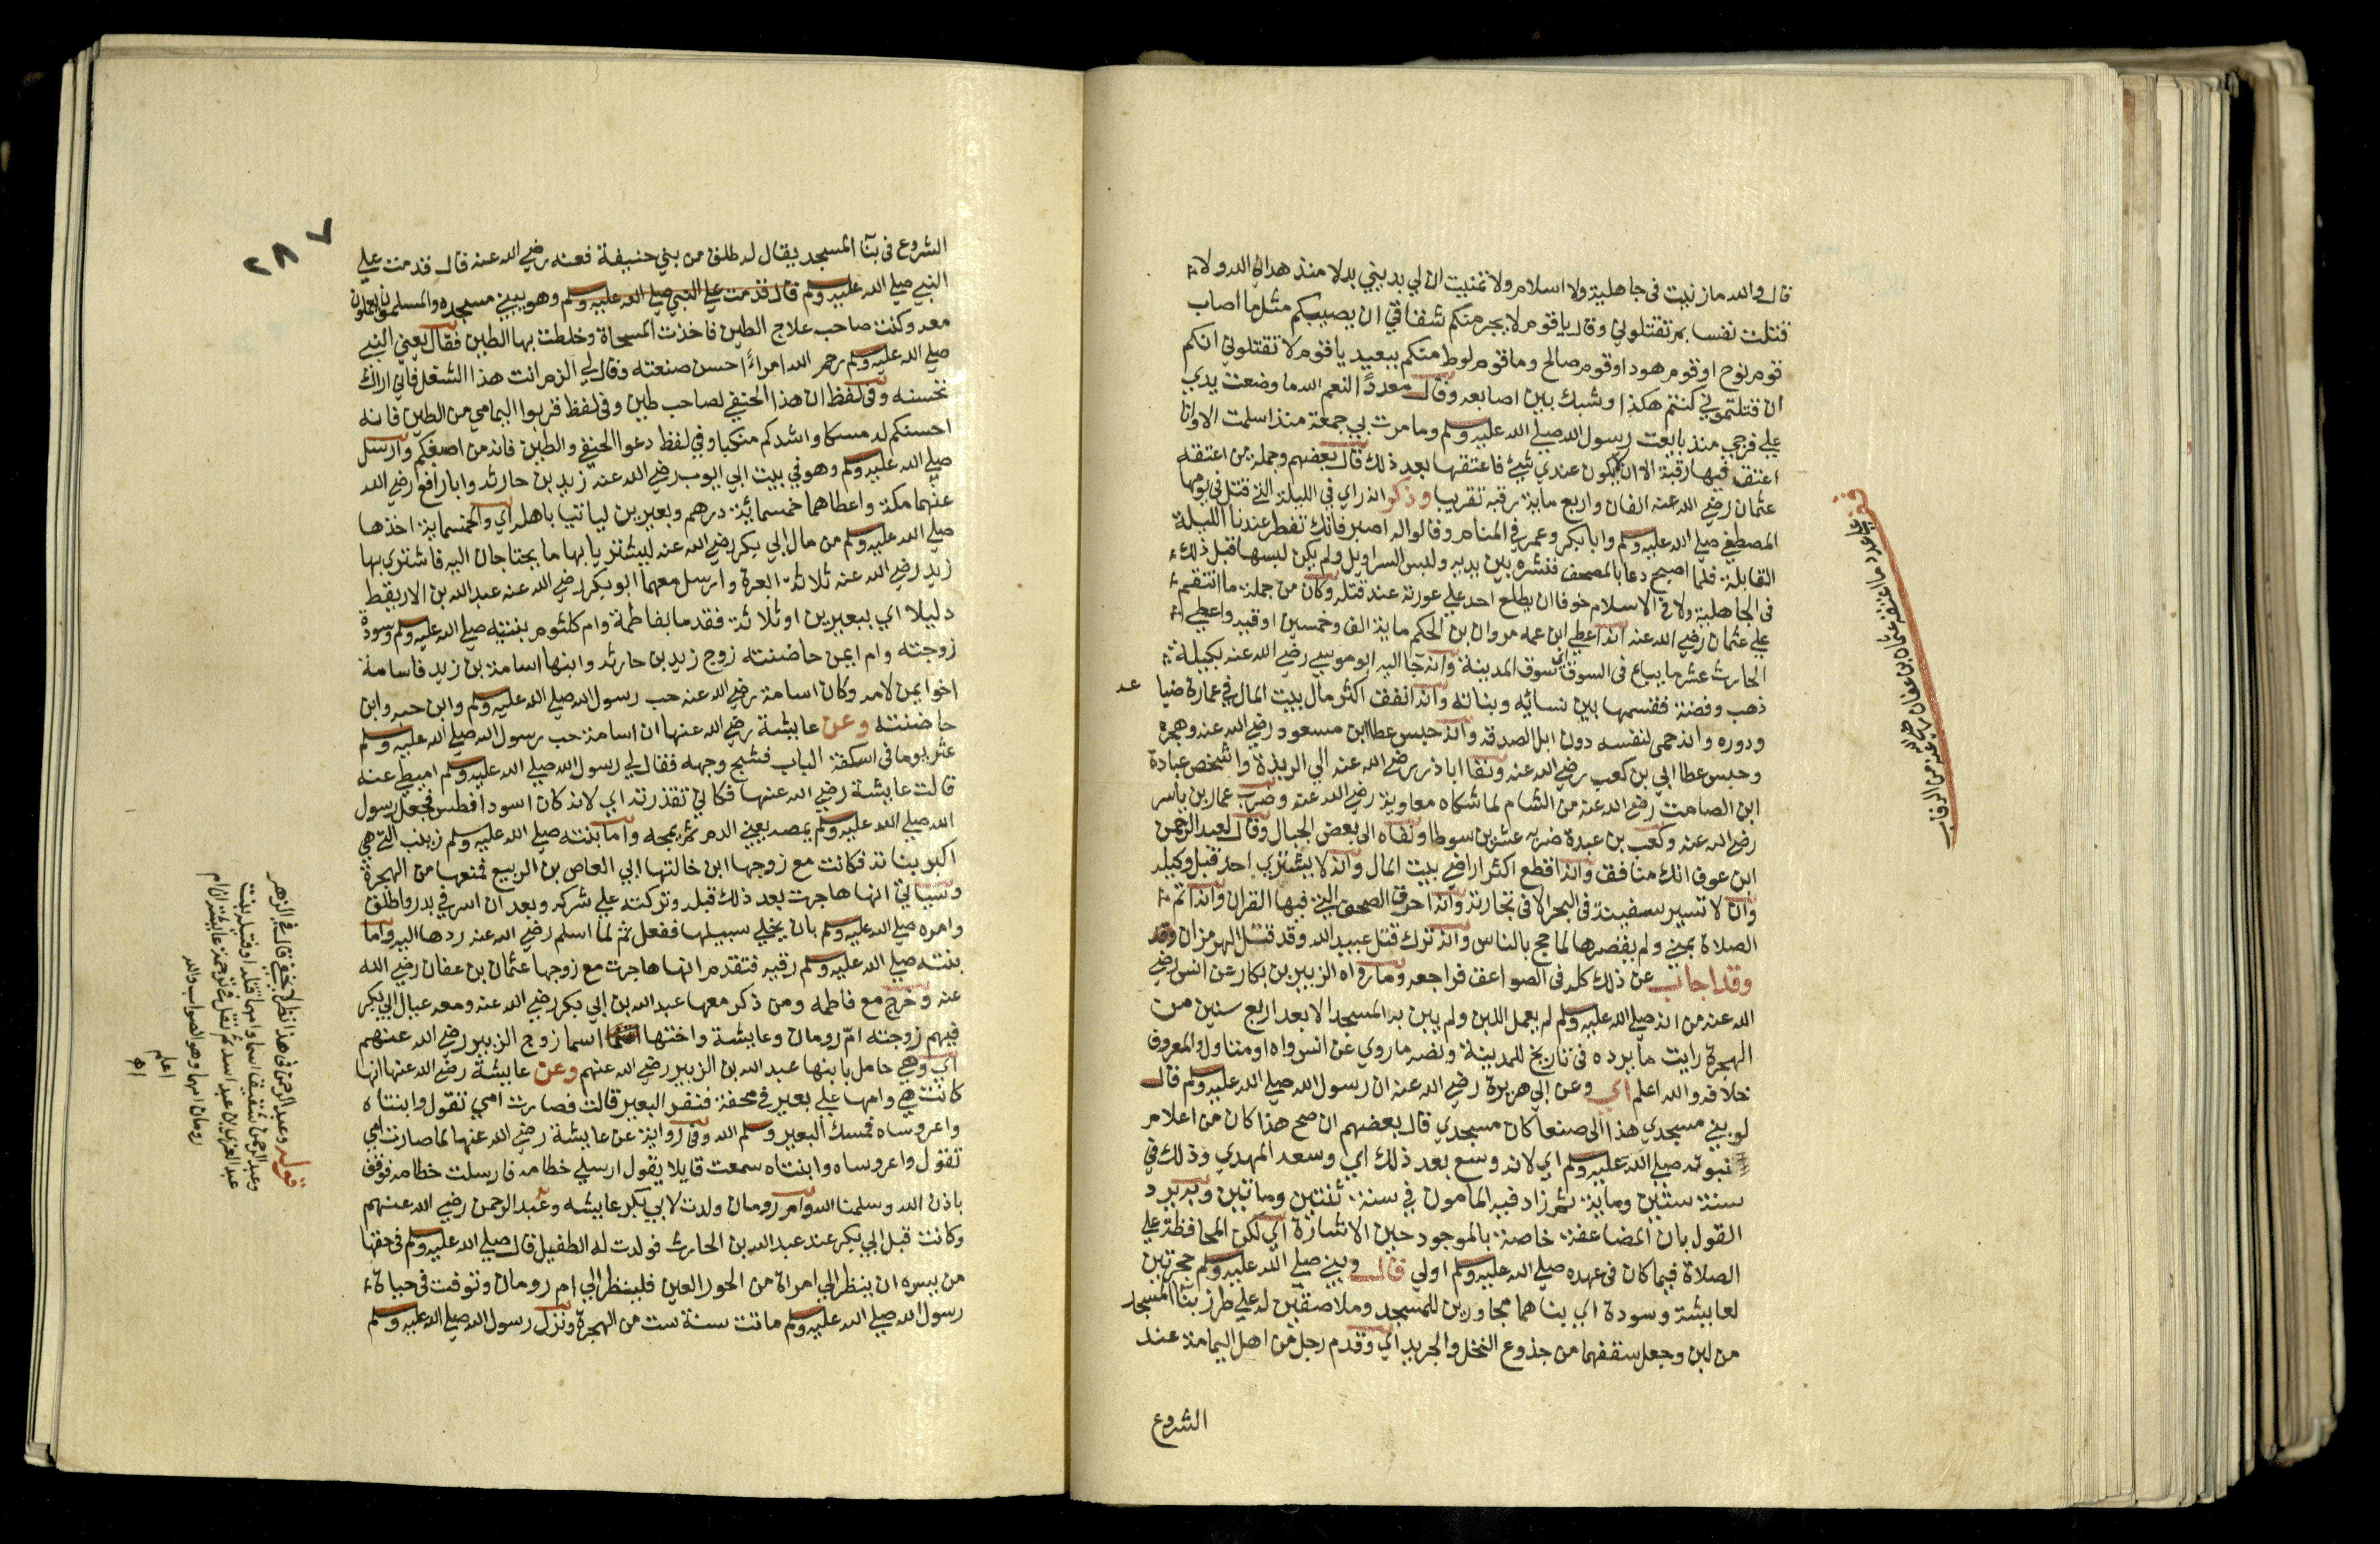 قال والله ما زنيت فى جاهلية ولا اسلام ولا تمنيت ان لي بديني بدلا منذ هداني الله ولا
قتلت نفسا بم تقتلوني وقال يا قوم لا يجرمنكم شقاقي ان يصيبكم مثل ما اصاب
قوم نوح او قوم هود او قوم صالح وما قوم لوط منكم ببعيد يا قوم لا تقتلوني انكم
ان قتلتموني كنتم هكذا وشبك بين اصابعه وقال معددا لنعم الله ما وضعت يدي
علي فرجي منذ بايعت رسول الله صلي الله عليه وسلم وما مرت بي جمعة منذ اسلمت الا وانا
اعتق فيها رقبة الا ان لا يكون عندي شيئ فاعتقها بعد ذلك قال بعضهم وجملة من اعتقه
عثمان رضي الله عنه الفان واربع ماية رقبة تقريبا وذكر انه راي في الليلة التي قتل في يومها
المصطفي صلي الله عليه وسلم وابا بكر وعمر في المنام وقالوا له اصبر فانك تفطر عندنا الليلة
القابلة فلما اصبح دعا بالمصحف فنشره بين يديه ولبس السراويل ولم يكن لبسها قبل ذلك
فى الجاهلية ولا فى الاسلام خوفا ان يطلع احد علي عورته عند قتله وكان من جملة ما انتقم
علي عثمان رضي الله عنه انه اعطي ابن عمه مروان بن الحكم ماية الف وخمسين اوقية واعطي
الحارث عشر ما يباع فى السوق اي سوق المدينة وانه جآ اليه ابو موسي رضي الله عنه بكيلة
ذهب وفضة فقسمها بين نسائه وبناته وانه انفق اكثر مال بيت المال في عمارة ضياعه
ودوره وانه حمى لنفسه دون ابل الصدقة وانه حبس عطا ابن مسعود رضي الله عنه وهجره
وحبس عطا ابي بن كعب رضي الله عنه ونفا اباذر رضي الله عنه الي الربذة واشخص عبادة
ابن الصامت رضي الله عنه من الشام لما شكاه معاوية رضي الله عنه وضرب عمار بن ياسر
رضي الله عنه وكعب بن عبدة ضربه عشرين سوطا ونفاه الى بعض الجبال وقال لعبد الرحمن
ابن عوف انك منافق وانه اقطع اكثر اراضي بيت المال وانه لا يشتري احد قبل وكيله
وان لا تسير سفينة فى البحر الا فى تجارته وانه احرق الصحف التي فيها القران وانه اتم
الصلاة بمني ولم يقصرها لما حج بالناس وانه ترك قتل عبيد الله وقد قتل الهرمزان وقد
وقد اجاب عن ذلك كله فى الصواعق فراجعه وما رواه الزبير بن بكار عن انس رضي
الله عنه من انه صلي الله عليه وسلم لم يعمل اللبن ولم يبن به المسجد الا بعد اربع سنين من
الهجرة رايت ما يرده فى تاريخ للمدينة ونصه ما روي عن انس واه او متناول والمعروف
خلافه والله اعلم اي وعن ابي هريرة رضي الله عنه ان رسول الله صلي الله عليه وسلم قال
لو بني مسجدي هذا الى صنعا كان مسجدي قال بعضهم ان صح هذا كان من اعلام
نبوته صلي الله عليه وسلم اي لانه وسع بعد ذلك اي وسعه المهدي وذلك في
سنة ستين وماية ثم زاد فيه المامون في سنة ثنتين وماتين ويريد
القول بان المضاعفة خاصة بالموجود حين الاشارة اي لكن المحافظة علي
الصلاة فيما كان فى عهده صلي الله عليه وسلم اولي قال وبني صلي الله عليه وسلم حجرتين
لعايشة وسودة اي بناهما مجاورين للمسجد وملاصقين له علي طرز بنا المسجد
من لبن وجعل سقفهما من جذوع النخل والجريد اي وقدم رجل من اهل اليمامة عند
الشروع
قف علي عدد ما اعتقه عثمان بن عفان رضي الله عنه من الرقاب
٢٨٧
الشروع فى بنآ المسجد يقال له طلق من بني حنيفة فعنه رضي الله عنه قال قدمت علي
النبي صلي الله عليه وسلم قال قدمت علي النبي صلي الله عليه وسلم وهو يبني مسجده والمسلمون يعملون
معه وكنت صاحب علاج الطين فاخذت المسحاة وخلطت بها الطين فقال يعني النبي
صلي الله عليه وسلم رحم الله امرأ احسن صنعته وقال لي الزم انت هذا الشغل فاني اراك
تحسنه وفى لفظ ان هذا الحنفي لصاحب طين وفى لفظ قربوا اليمامي من الطين فانه
احسنكم له مسكا واشدكم منكبا وفي لفظ دعوا الحنفي والطين فانه من اصنعكم وارسل
صلي الله عليه وسلم وهو في بيت ابي ايوب رضي الله عنه زيد بن حارثه وابا رافع رضي الله
عنهما مكة واعطاهما خمسمائة درهم وبعيرين لياتيا باهله اي والخمسماية اخذها
صلي الله عليه وسلم من مال ابي بكر رضي الله عنه ليشتريا بها ما يحتاجان اليه فاشتري بها
زيد رضي الله عنه ثلاثة ابعرة وارسل معهما ابو بكر رضي الله عنه عبد الله بن الاريقط
دليلا اي ببعيرين او ثلاثة فقدما بفاطمة وام كلثوم بنتيه صلي الله عليه وسلم وسودة
زوجته وام ايمن حاضنته زوج زيد بن حارثه وابنها اسامة بن زيد فاسامة
اخو ايمن لامه وكان اسامة رضي الله عنه حب رسول الله صلي الله عليه وسلم وابن حبه وابن
حاضنته وعن عايشة رضي الله عنها ان اسامة حب رسول الله صلي الله عليه وسلم
عثر يوما فى اسكفة الباب فشج وجهه فقال لي رسول الله صلي الله عليه وسلم اميطي عنه
قالت عايشة رضي الله عنها فكاني تقذرته اي لانه كان اسود افطس فجعل رسول
الله صلي الله عليه وسلم يمصه يعني الدم ثم يمجه واما بنته صلي الله عليه وسلم زينب التي هي
اكبر بناته فكانت مع زوجها ابن خالتها ابي العاص بن الربيع فمنعها من الهجرة
وسياتي انها هاجرت بعد ذلك قبله وتركته علي شركه وبعد ان اسر في بدر واطلق
وامره صلي الله عليه وسلم بان يخلي سبيلها ففعل ثم لما اسلم رضي الله عنه ردها اليه واما
بنته صلي الله عليه وسلم رقيه فتقدم انها هاجرت مع زوجها عثمان بن عفان رضي الله
عنه وخرج مع فاطمه ومن ذكر معها عبد الله بن ابي بكر رضي الله عنه ومعه عيال ابي بكر
فيهم زوجته ام رومان وعايشة واختها اسما زوج الزبير رضي الله عنهم
اي وهي حامل بابنها عبد الله بن الزبير رضي الله عنهم وعن عايشة رضي الله عنها انها
كانت هي وامها علي بعير في محفة فنفر البعير قالت فصارت امي تقول وابنتاه
واعروساه فمسك البعير وسلم الله وفى رواية عن عايشة رضي الله عنها لما صارت امي
تقول واعروساه وابنتاه سمعت قايلا يقول ارسلي خطامه فارسلت خطامه فوقف
باذن الله وسلمنا الله وام رومان ولدت لابي بكر عايشه وعبد الرحمن رضي الله عنهم
وكانت قبل ابي بكر عند عبد الله بن الحارث فولدت له الطفيل قال صلي الله عليه وسلم فى حقها
من يسره ان ينظر الي امراة من الحور العين فلينظر الي ام رومان وتوفت فى حياة
رسول الله صلي الله عليه وسلم ماتت سنة ست من الهجرة ونزل رسول الله صلي الله عليه وسلم
قوله وعبد الرحمن فى هذا نظر لا يخفي قال في الزهر
وعبد الرحمن شقيق اسما وامها قتله او قتيله بنت
عبد العزي بن عبد اسد ثم نقل في ترجمة عايشة ان ام
رومان امها وهو الصواب والله
اعلم
اه